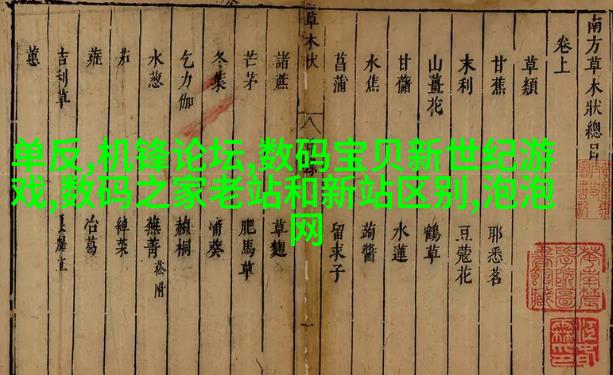 南方草木狀總目
卷上
草類
甘蕉
耶悉茗
末利
豆蔻花
山薑花
鶴草
甘藷
水蓮
水蕉
蒟醬
菖蒲
留求子
草木狀
諸蔗
草麴
芒茅
肥馬草
冬葉
蒲葵
乞力伽
赬桐
水葱
蕪菁
茄
綽菜
蕹
冶葛
吉利草
蕙
单反,机锋论坛,数码宝贝新世纪游
戏,数码之家老站和新站区别,泡泡
网